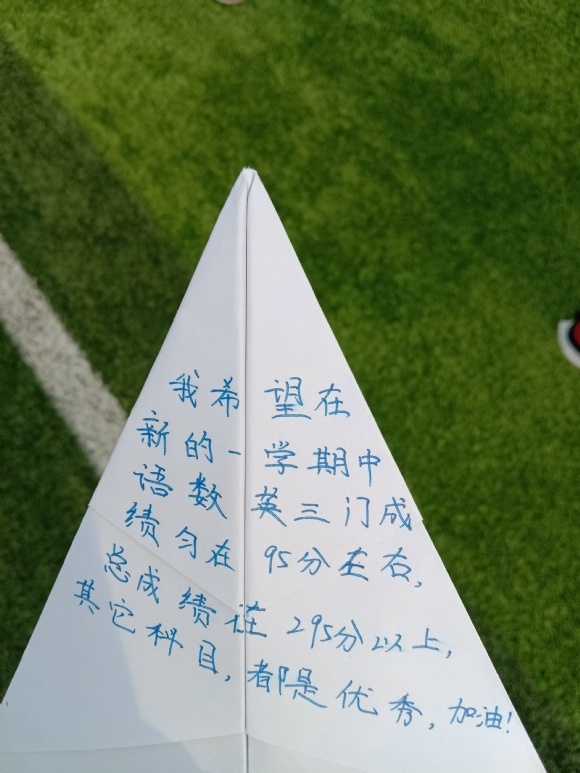 我希望在
新的一学期中
语数英三门成
绩匀在95分左右，
总成绩在295分以上，
其它科目，都是优秀，加油！